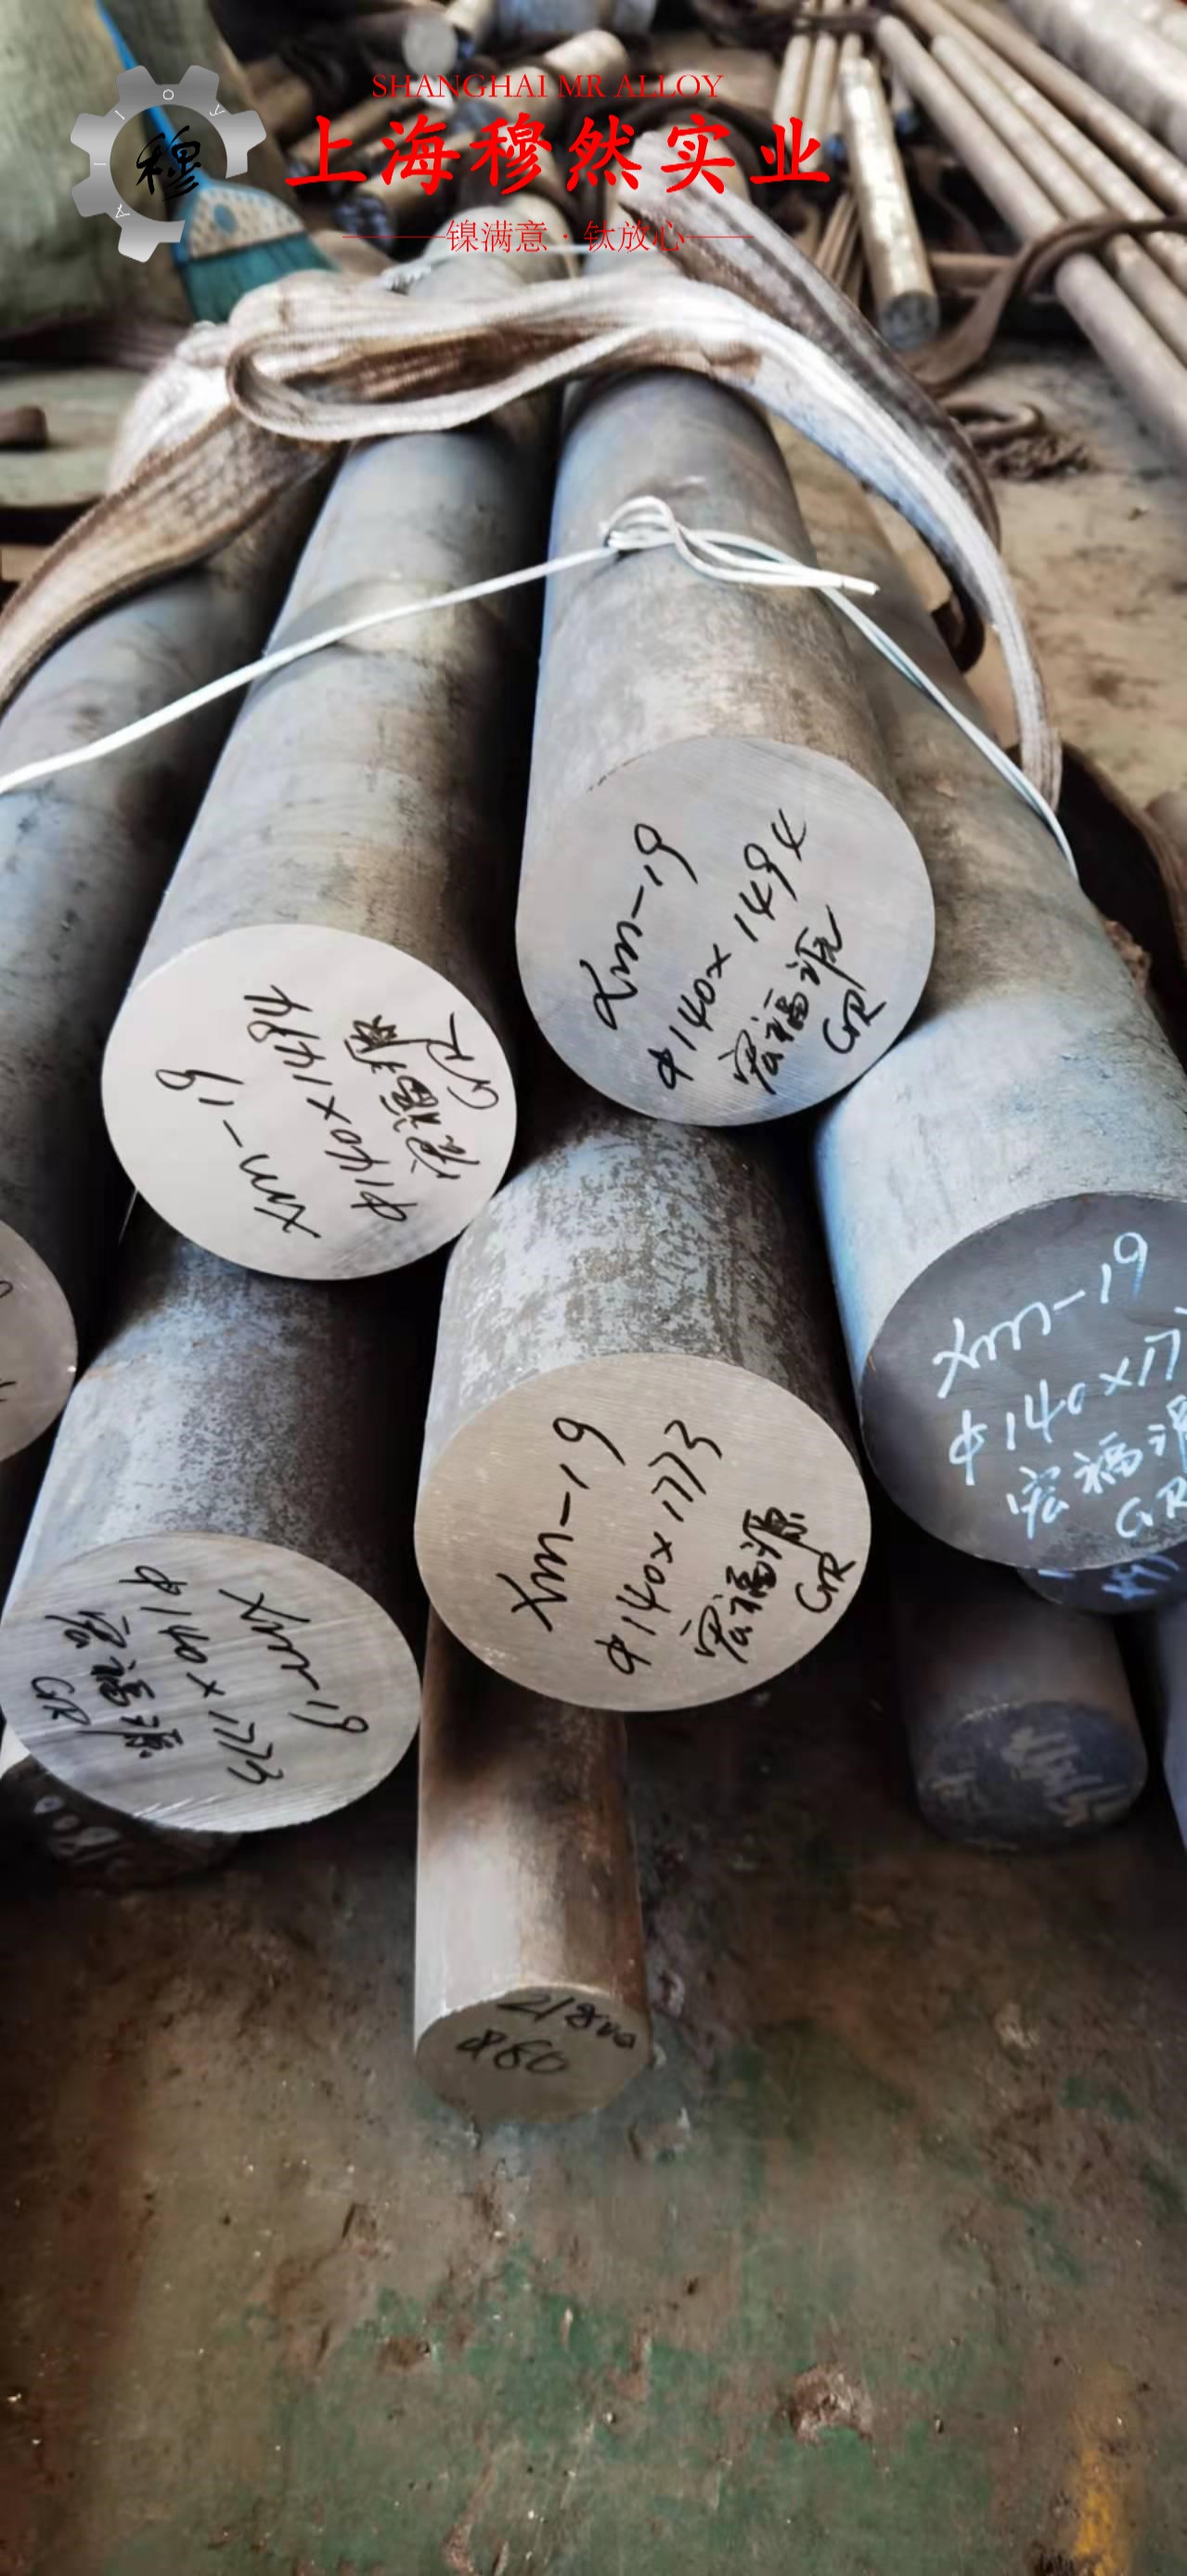 SHANGHAI MR ALLOY
上海穆然实业
镍满意·钛放心
穆
ALLOY
Xm-19
φ140×1494
宏福源
GR
Xm-19
φ140×1494
宏福源
GR
Xm-19
φ140×177
宏福源
GR
Xm-19
φ140×1773
宏福源
GR
Xm-19
φ140×1773
宏福源
GR